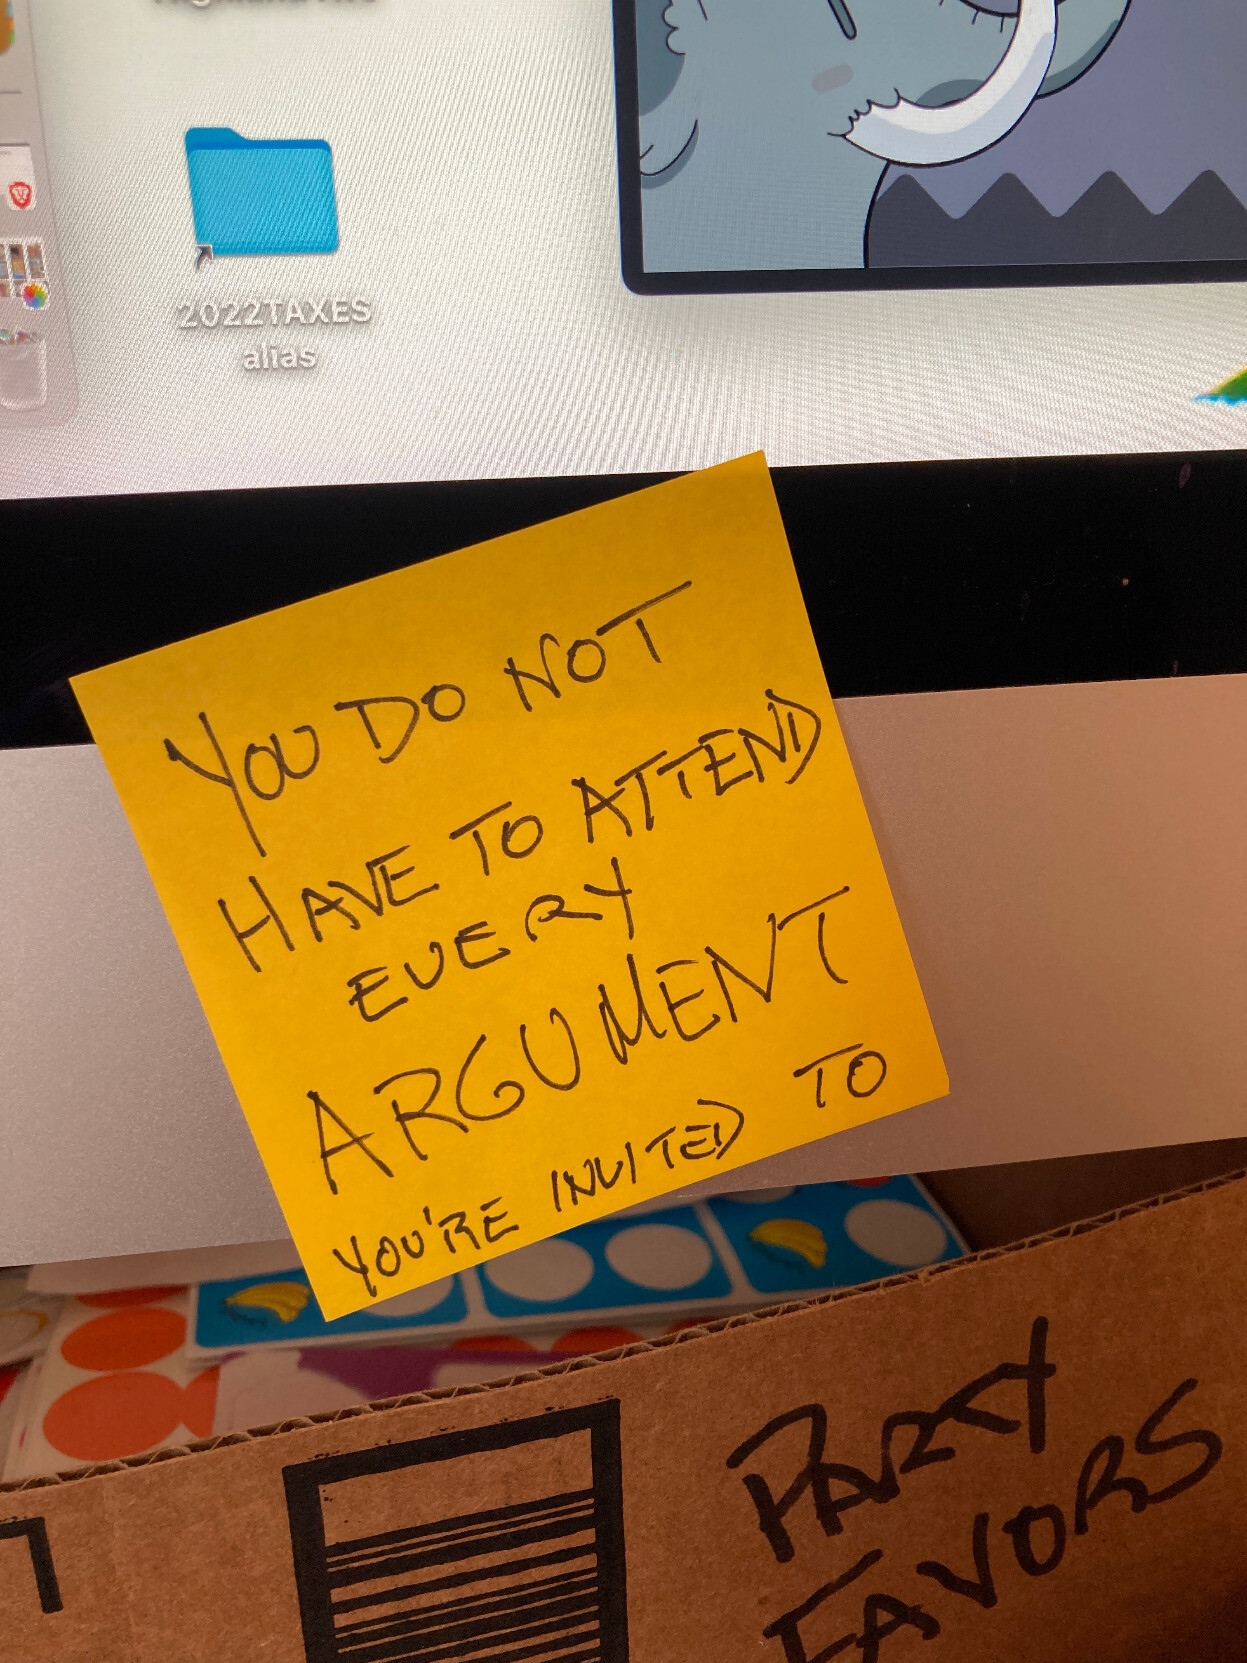 2022TAXES
alias
YOU DO NOT
HAVE TO ATTEND
EVERY
ARGUMENT
YOU'RE INVITED TO
PARTY
FAVORS